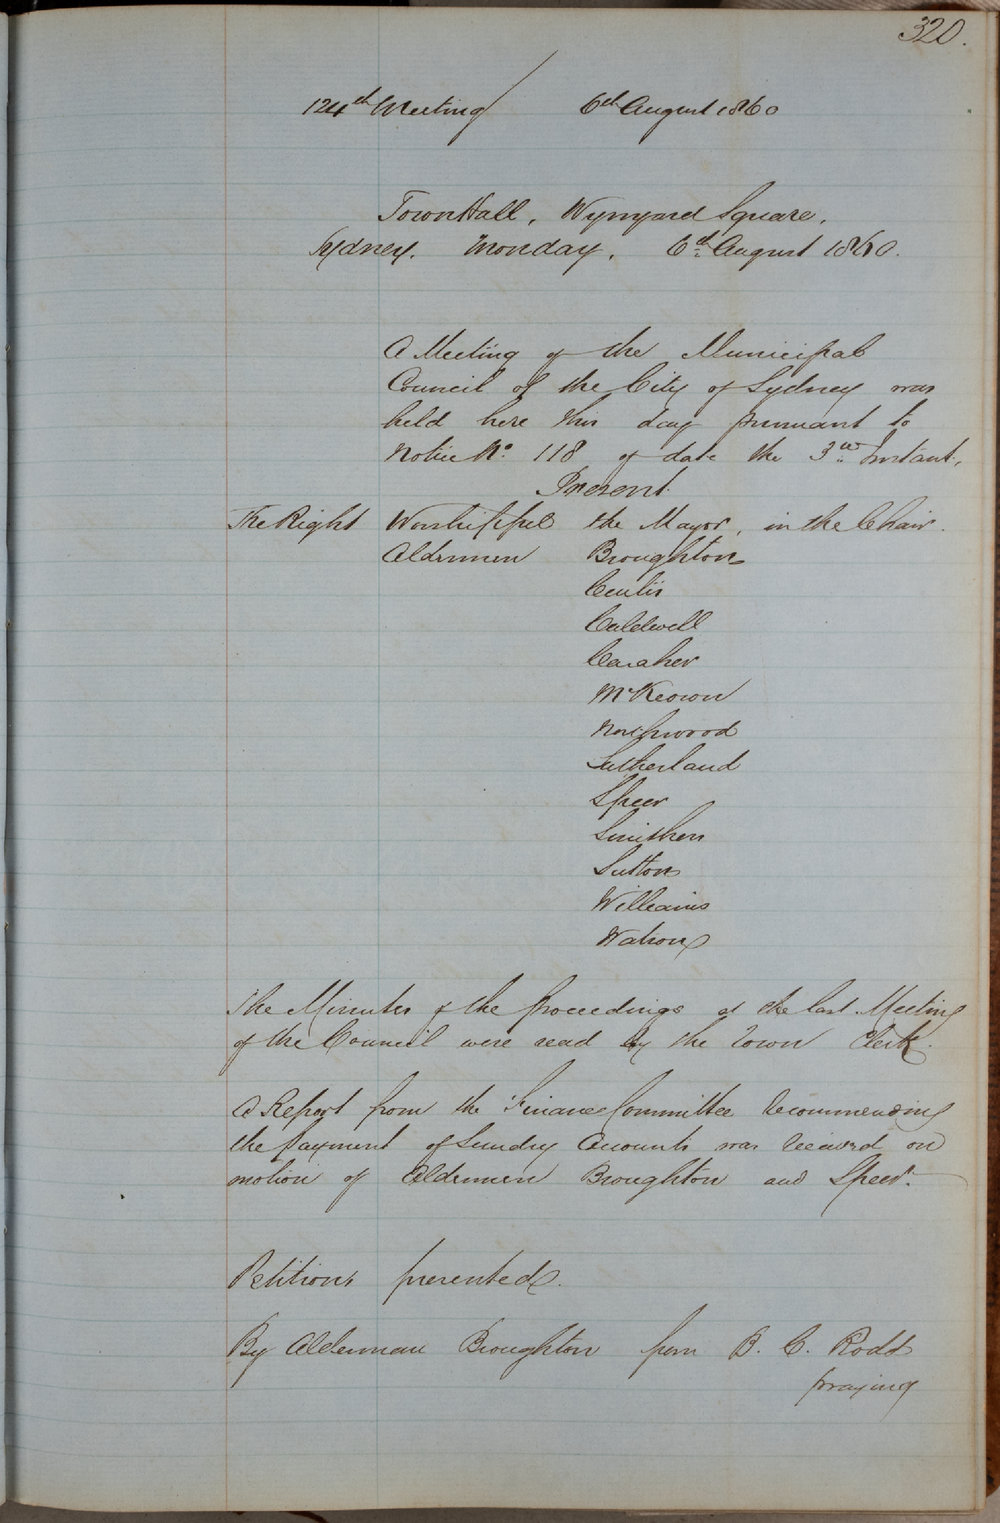 320.
124th Meeting / 6th August 1860
Town Hall, Wynyard Square,
Sydney. Monday, 6th August 1860.
A Meeting of the Municipal
Council of the City of Sydney was
held here this day pursuant to
Notice No. 118 of date the 3rd Instant,
Present.
The Right Worshipful the Mayor, in the Chair.
Aldermen Broughton
Curtis
Caldwell
Caraher
McKeown
Northwood
Sutherland
Speer
Smithers
Sutton
Williams
Watson
The Minutes of the proceedings at the last Meeting
of the Council were read by the Town Clerk.
A Report from the Finance Committee recommending
the payment of Sundry Accounts was received on
motion of Aldermen Broughton and Speer.
Petitions presented.
By Alderman Broughton from B. C. Rodd
praying